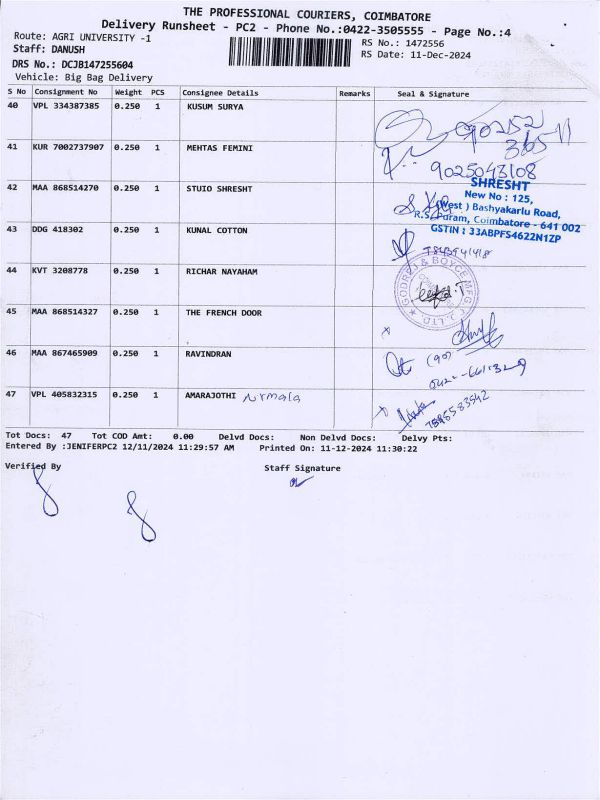 THE PROFESSIONAL COURIERS, COIMBATORE
Delivery Runsheet - PC2 - Phone No.:0422-3505555 - Page No.:4
Route: AGRI UNIVERSITY -1
RS No.: 1472556
Staff: DANUSH
RS Date: 11-Dec-2024
DRS No.: DCJB147255604
Vehicle: Big Bag Delivery
S No Consignment No Weight PCS Consignee Details Remarks Seal & Signature
40 VPL 334387385 0.250 1 KUSUM SURYA
41 KUR 7002737907 0.250 1 MEHTAS FEMINI
9025043108
42 MAA 868514270 0.250 1 STUIO SHRESHT
SHRESHT
New No : 125,
(West ) Bashyakarlu Road,
R.S. Puram, Coimbatore - 641 002
GSTIN : 33ABPFS4622N1ZP
43 DDG 418302 0.250 1 KUNAL COTTON
44 KVT 3208778 0.250 1 RICHAR NAYAHAM
GODREJ & BOYCE MFG. CO. LTD.
45 MAA 868514327 0.250 1 THE FRENCH DOOR
46 MAA 867465909 0.250 1 RAVINDRAN
47 VPL 405832315 0.250 1 AMARAJOTHI Nirmala
Tot Docs: 47 Tot COD Amt: 0.00 Delvd Docs: Non Delvd Docs: Delvy Pts:
Entered By :JENIFERPC2 12/11/2024 11:29:57 AM Printed On: 11-12-2024 11:30:22
Verified By
Staff Signature